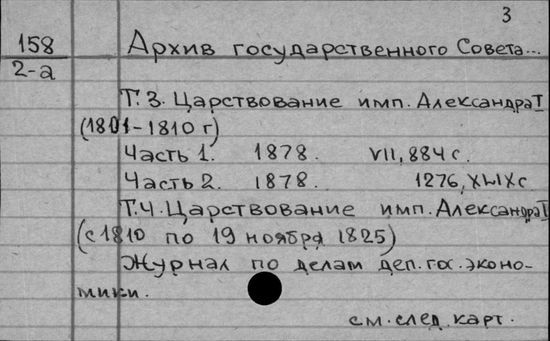 3
158
2-а
Архив государственного Совета...
Т.З. Царствование имп. Александра I
(1801-1810 г)
Часть 1. 1878. VII, 884 с.
Часть 2. 1878. 1276, XLIX с.
Т.Ч. Царствование имп. Александра I
(с 1810 по 19 ноября 1825)
Журнал по делам деп. гос. эконо-
мики.
см. след. карт.